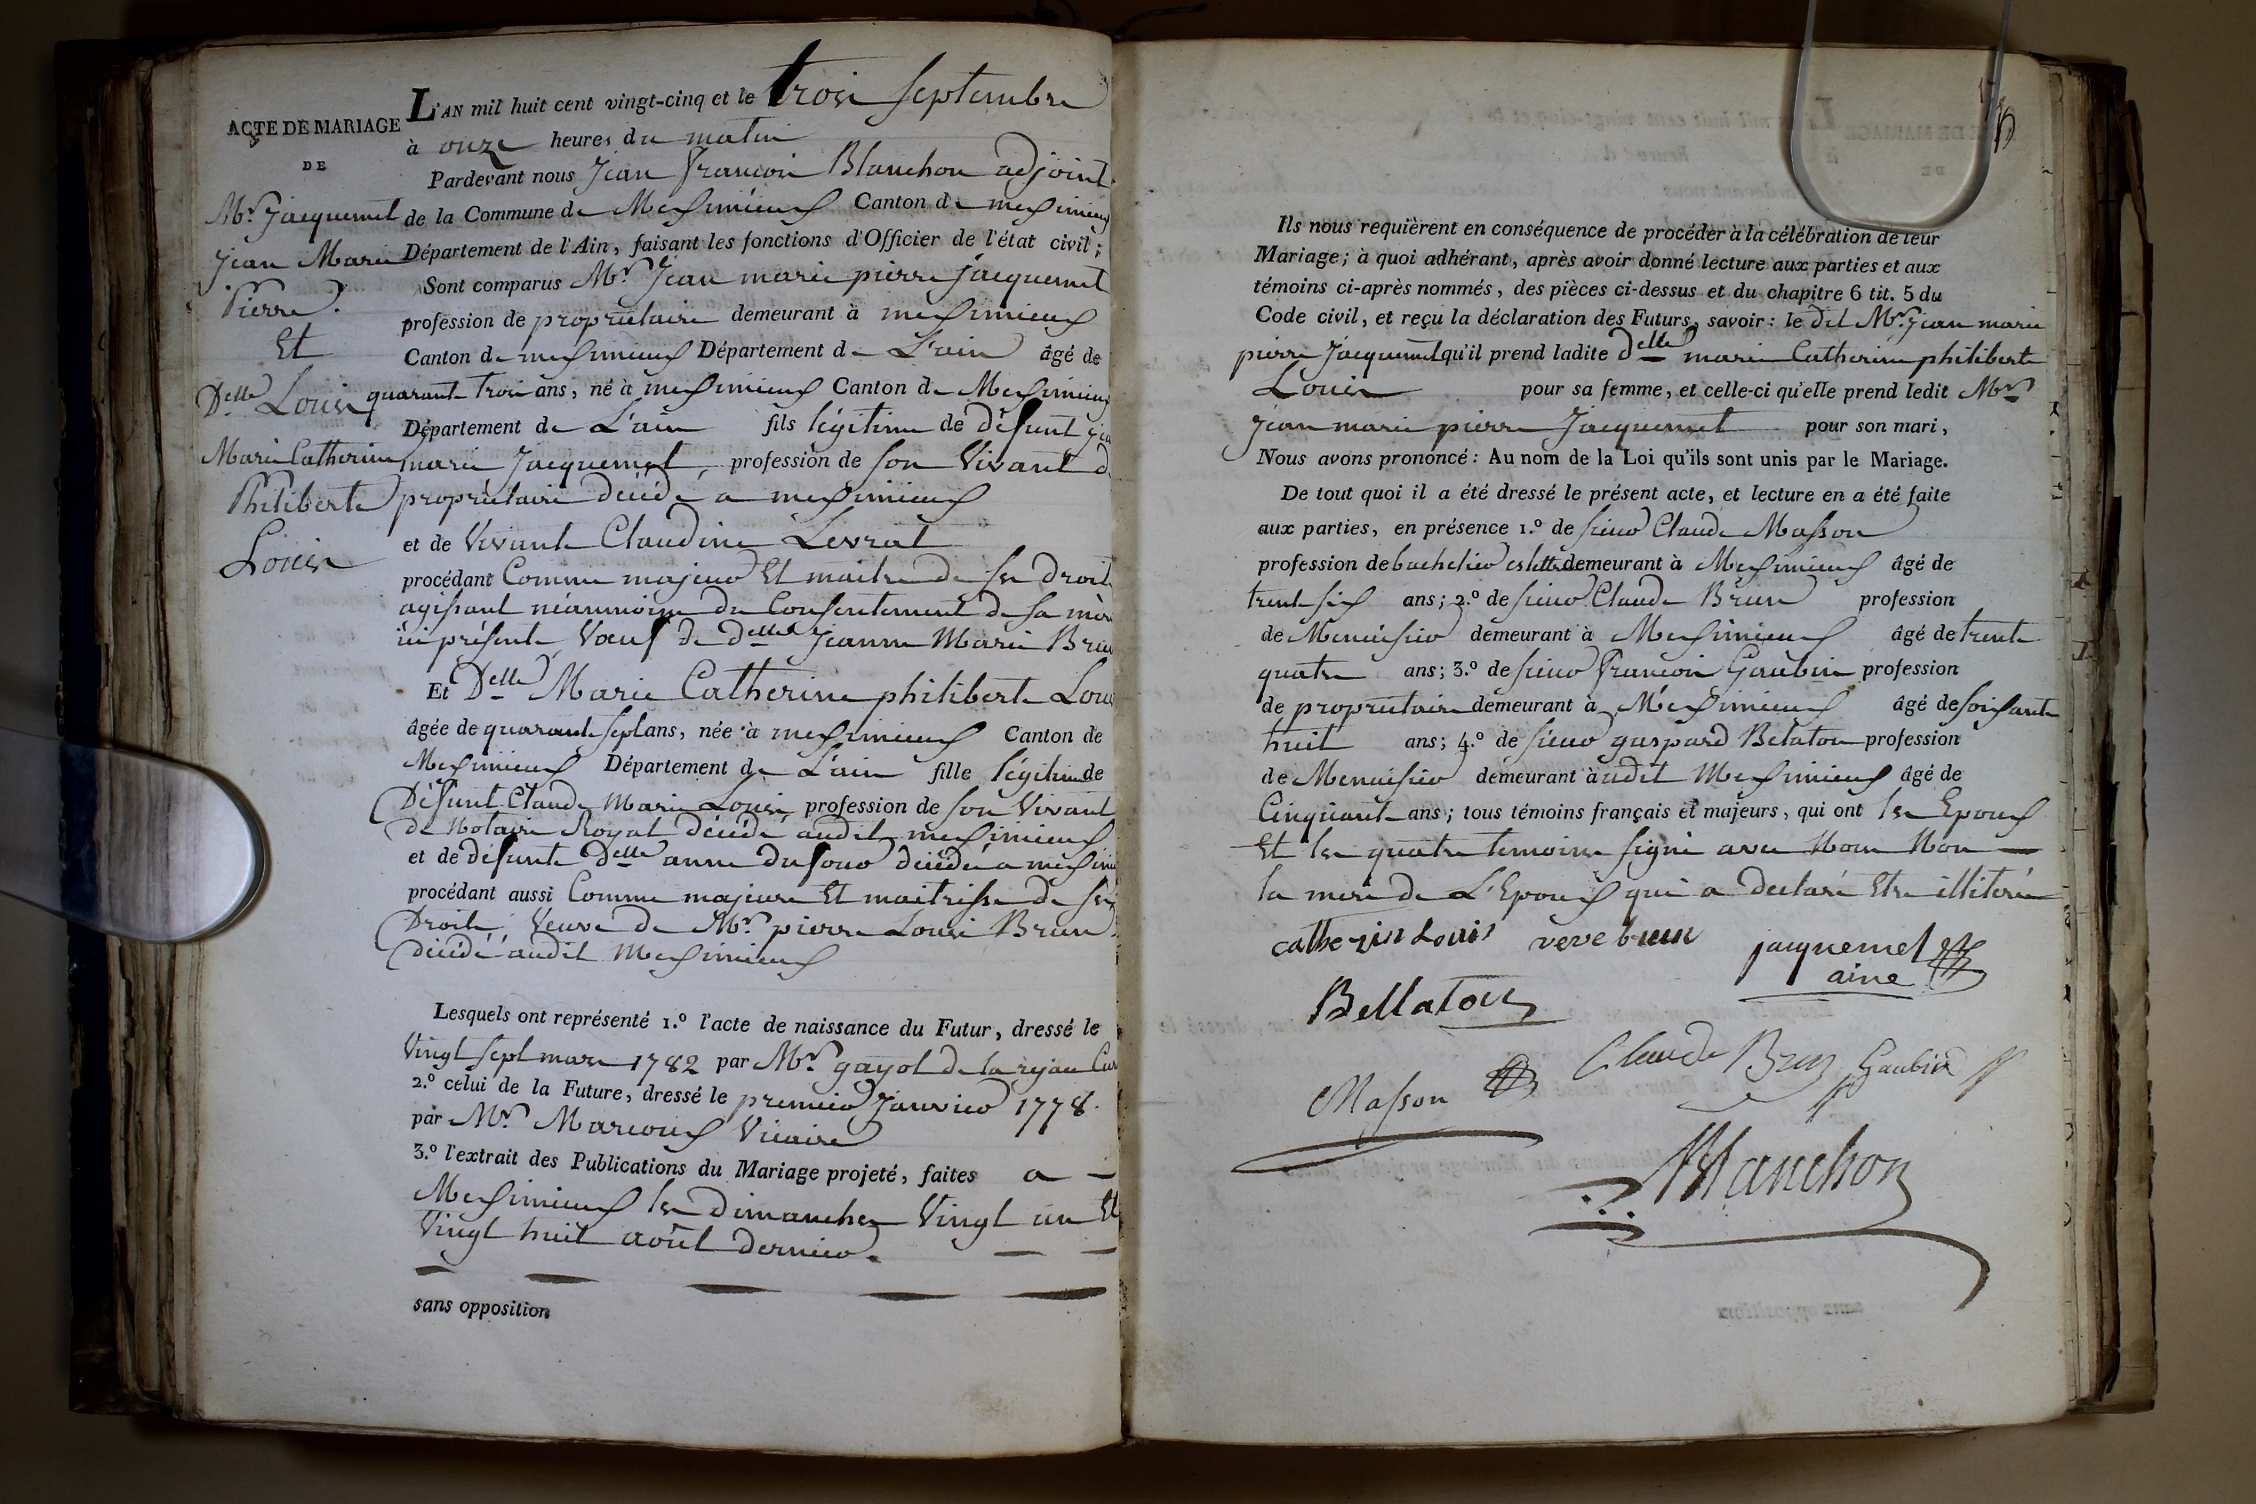 ACTE DE MARIAGE
DE
Mr. Jacquemet
Jean Marie
Pierre.
Et
Delle Louis
Marie Catherine
Philiberte
Louis
L'AN mil huit cent vingt-cinq et le trois septembre
à onze heures du matin
Pardevant nous Jean François Blanchon adjoint
de la Commune de Meximieux Canton de meximieux
Département de l'Ain, faisant les fonctions d'Officier de l'état civil;
Sont comparus Mr. Jean marie pierre Jacquemet
profession de propriétaire demeurant à meximieux
Canton de meximieux Département de L'ain âgé de
quarante trois ans, né à meximieux Canton de Meximieux
Département de L'ain fils légitime de défunt
marie Jacquemet, profession de son Vivant
propriétaire décédé a meximieux
et de Vivante Claudine Levrat
procédant Comme majeur Et maitre de ses droits
agissant néanmoins du Consentement de sa mère
ici présente, Voeuf de delle Jeanne Marie Brun
Et Delle Marie Catherine philiberte Louis
âgée de quarante sept ans, née à meximieux Canton de
Meximieux Département de L'ain fille légitime de
Défunt Claude Marie Louis, profession de son Vivant
de Notaire Royal décédé audit meximieux
et de défunte delle anne dufour décédée a
procédant aussi Comme majeure Et maitresse de ses
Droits, Veuve de Mr. pierre Louis Brun
décédé audit Meximieux
Lesquels ont représenté 1.º l'acte de naissance du Futur, dressé le
Vingt sept mars 1782 par Mr. gayot de la
2.º celui de la Future, dressé le premier Janvier 1778.
par Mr. Marcoux Vicaire
3.º l'extrait des Publications du Mariage projeté, faites a
Meximieux les dimanches Vingt un Et
Vingt huit août dernier.
sans opposition
Ils nous requièrent en conséquence de procéder à la célébration de leur
Mariage; à quoi adhérant, après avoir donné lecture aux parties et aux
témoins ci-après nommés, des pièces ci-dessus et du chapitre 6 tit. 5 du
Code civil, et reçu la déclaration des Futurs, savoir: le dit Mr. jean marie
pierre Jacquemet qu'il prend ladite delle marie Catherine philiberte
Louis pour sa femme, et celle-ci qu'elle prend ledit Mr.
Jean marie pierre Jacquemet pour son mari,
Nous avons prononcé: Au nom de la Loi qu'ils sont unis par le Mariage.
De tout quoi il a été dressé le présent acte, et lecture en a été faite
aux parties, en présence 1.º de sieur Claude Masson
profession de bachelier es lettre demeurant à Meximieux âgé de
trente six ans; 2.º de sieur Claude Brun profession
de Menuisier demeurant à Meximieux âgé de trente
quatre ans; 3.º de sieur françois Gaubin profession
de propriétaire demeurant à Méximieux âgé de soixante
huit ans; 4.º de sieur gaspard Belaton profession
de Menuisier demeurant à udit Meximieux âgé de
Cinquante ans; tous témoins français et majeurs, qui ont les Epoux
Et les quatre temoins signé avec Nous Non
la mere de L'Epoux qui a declaré Etre illiterée
catherin Louis veve brun jacquemet
ainé
Bellaton
Claude Brun Gaubin
Masson
Blanchon